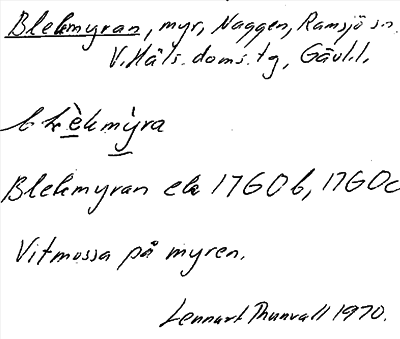 Blekmyran, myr, Naggen, Ramsjö sn.
V. Häls. doms. tg, Gävl. l.
Blekmyran ek 1760b, 1760c
Vitmossa på myren.
Lennart Thunvall 1970.